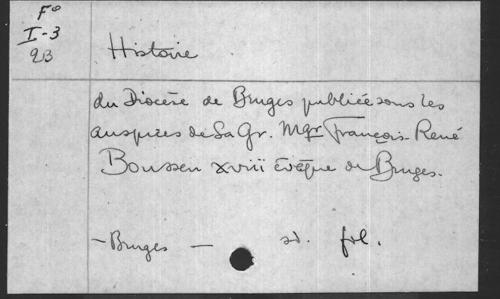 Fo
I-3
23
Histoire
du Diocèse de Bruges publiée sous les
auspices de Sa Gr. Mgr François René
Boussen XVIII Évêque de Bruges.
- Bruges - sd. fol.